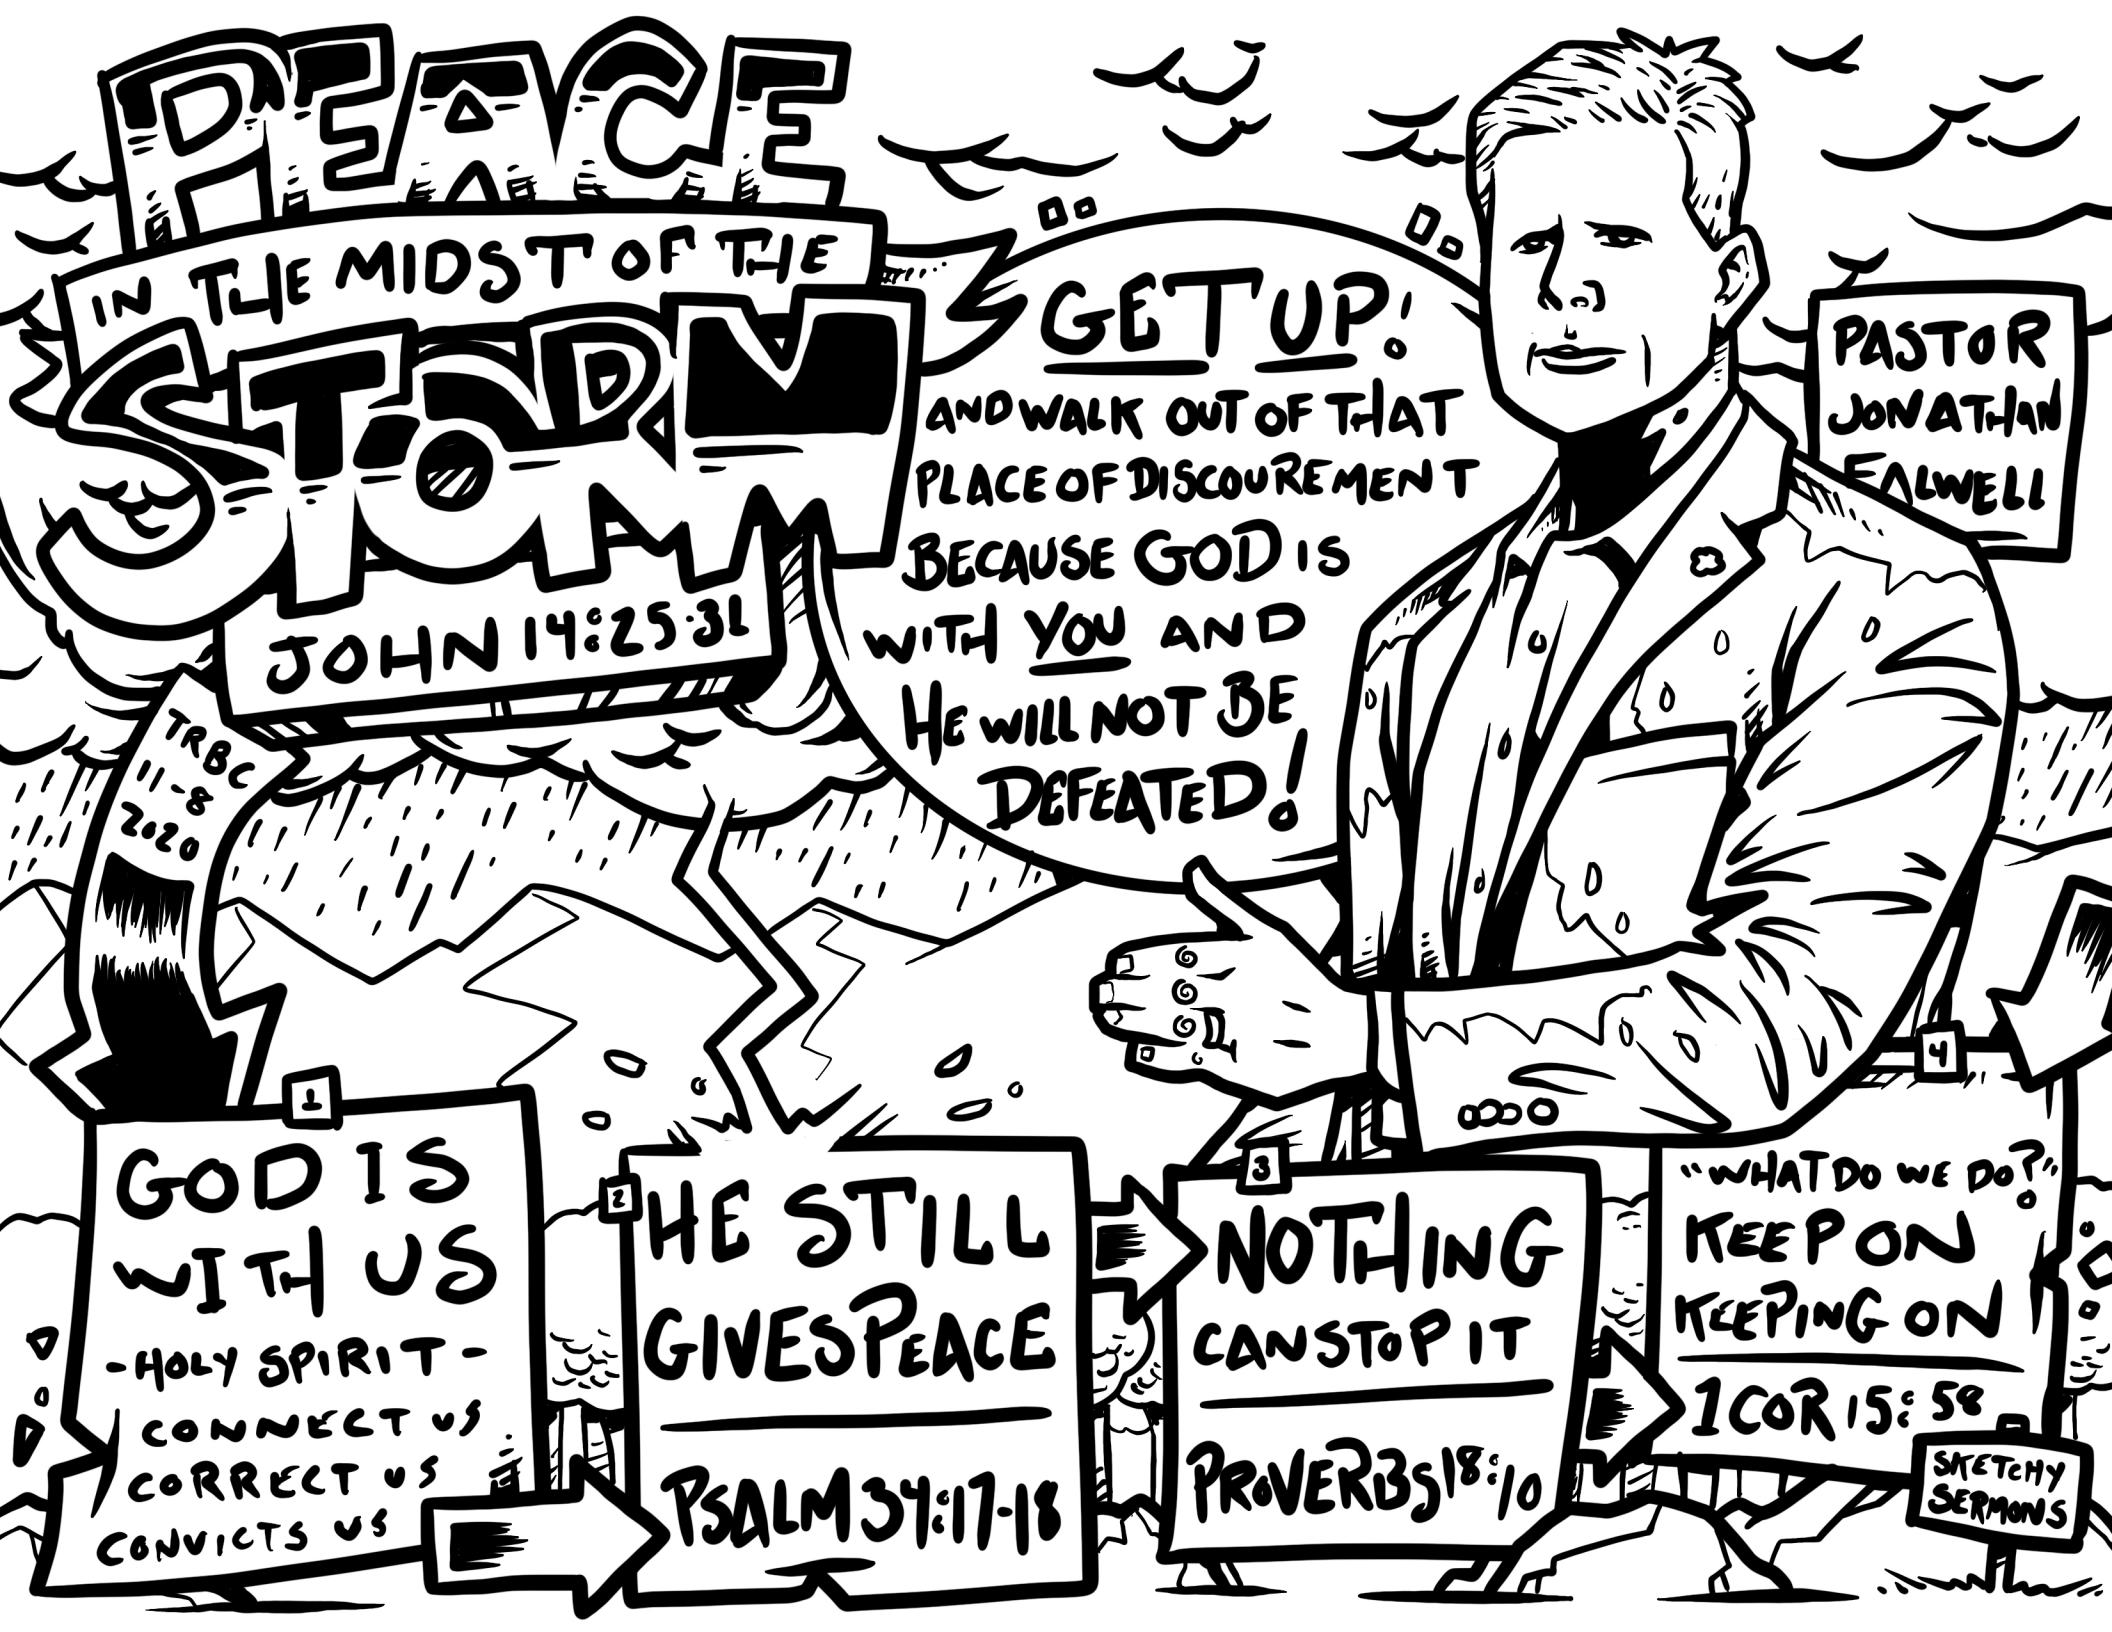 PEACE
IN THE MIDST OF THE
STORM
JOHN 14:25-31
TRBC
11-8
2020
GET UP!
AND WALK OUT OF THAT
PLACE OF DISCOUREMENT
BECAUSE GOD IS
WITH YOU AND
HE WILL NOT BE
DEFEATED!
PASTOR
JONATHAN
FALWELL
1
GOD IS
WITH US
-HOLY SPIRIT-
CONNECT US
CORRECT US
CONVICTS US
2
HE STILL
GIVES PEACE
PSALM 34:17-18
3
NOTHING
CAN STOP IT
PROVERBS 18:10
4
"WHAT DO WE DO?"
KEEP ON
KEEPING ON
1 COR 15:58
SKETCHY
SERMONS